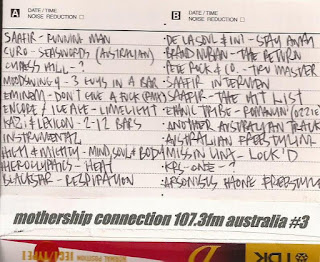 A DATE / TIME
NOISE REDUCTION
B DATE / TIME
NOISE REDUCTION
SAAFIR - RUNNING MAN
CURO - SEASWORDS (AUSTRALIAN)
CYPRESS HILL - ?
MEDSWING - 3 GUYS IN A BAR
EMINEM - DON'T GIVE A FUCK (RMX)
ENCORE / LIVE ALE - LIMELIGHT
KAZI & LEXION - 2-12 BARS
INSTRUMENTAL
HIGH & MIGHTY - MIND SOUL & BODY
HIEROGLYPHICS - HEAT
BLACKSTAR - RESPIRATION
DE LA SOUL & INI - STAY AWAY
BRAND NUBIAN - THE RETURN
PETE ROCK & IO - TRU MASTER
SAAFIR INTERVIEW
SAAFIR - THE HIT LIST
ETHNIC TRIBE - ROMANIN' (OZZIE)
ANOTHER AUSTRALIAN TRACK
AUSTRALIAN FREESTYLIN
MISSIN LINX - LOCK'D
KRS-ONE - ?
ARSONISTS PHONE FREESTYLE
mothership connection 107.3fm australia #3
TDK